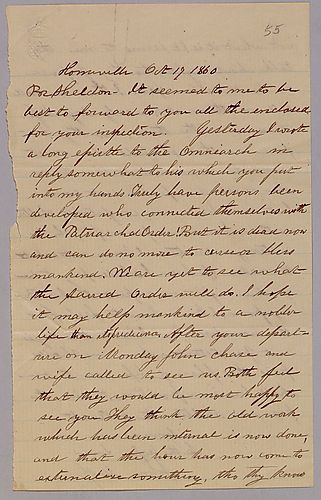 55
Homeville Oct 17 1860
Bro Sheldon. It seemed to me to be
best to forward to you all the enclosed
for your inspection. Yesterday I wrote
a long epistle to the Omniarch in
reply somewhat to his which you put
into my hands. Truly have persons been
developed who connected themselves with
the Patriarchal Order! But it is dead now
and can do no more to curse or bless
mankind. We are yet to see what
the Sacred Order will do. I hope
it may help mankind to a nobler
life than its predecessor. After your depart-
ure on Monday John Chase and
wife called to see us. Both feel
that they would be most happy to
see you. They think the old work
which has been internal is now done,
and that the hour has now come to
externalize something, tho they know